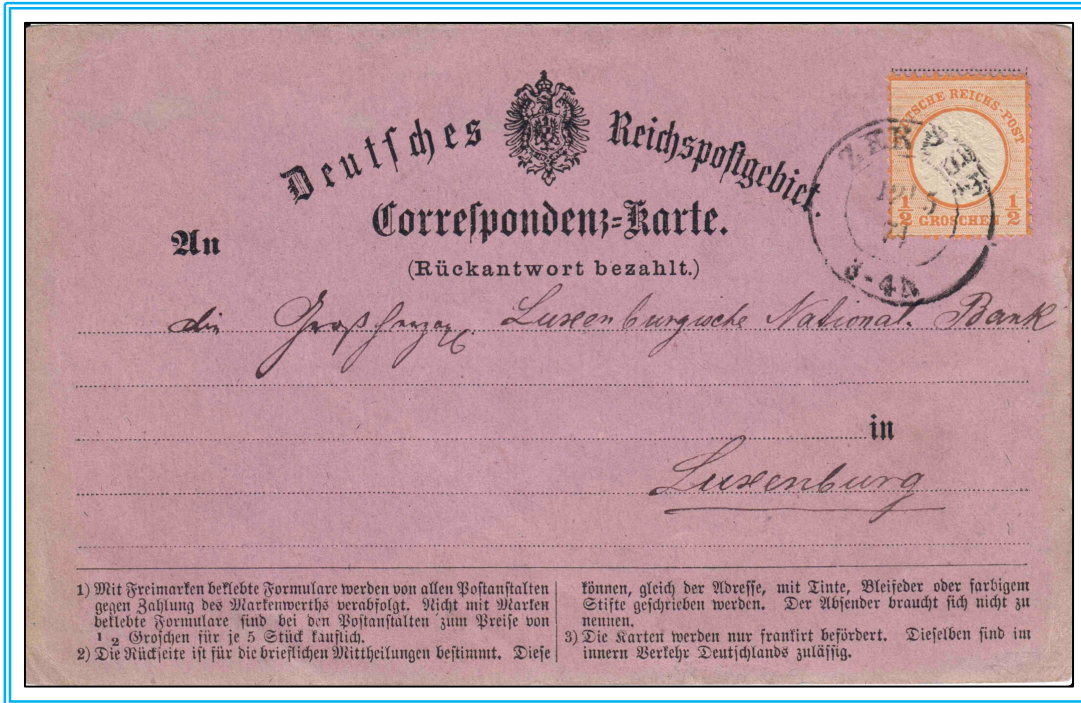 Deutsches Reichspostgebiet.
Correspondenz-Karte.
(Rückantwort bezahlt.)
DEUTSCHE REICHS-POST
½ GROSCHEN ½
ZERBST
3-4N
An
die Großherzogl. Luxenburgische National. Bank
in
Luxenburg
1) Mit Freimarken beklebte Formulare werden von allen Postanstalten
gegen Zahlung des Markenwerths verabfolgt. Nicht mit Marken
beklebte Formulare sind bei den Postanstalten zum Preise von
1 2 Groschen für je 5 Stück käuflich.
2) Die Rückseite ist für die brieflichen Mittheilungen bestimmt. Diese
können, gleich der Adresse, mit Tinte, Bleifeder oder farbigem
Stifte geschrieben werden. Der Absender braucht sich nicht zu
nennen.
3) Die Karten werden nur frankirt befördert. Dieselben sind im
innern Verkehr Deutschlands zulässig.